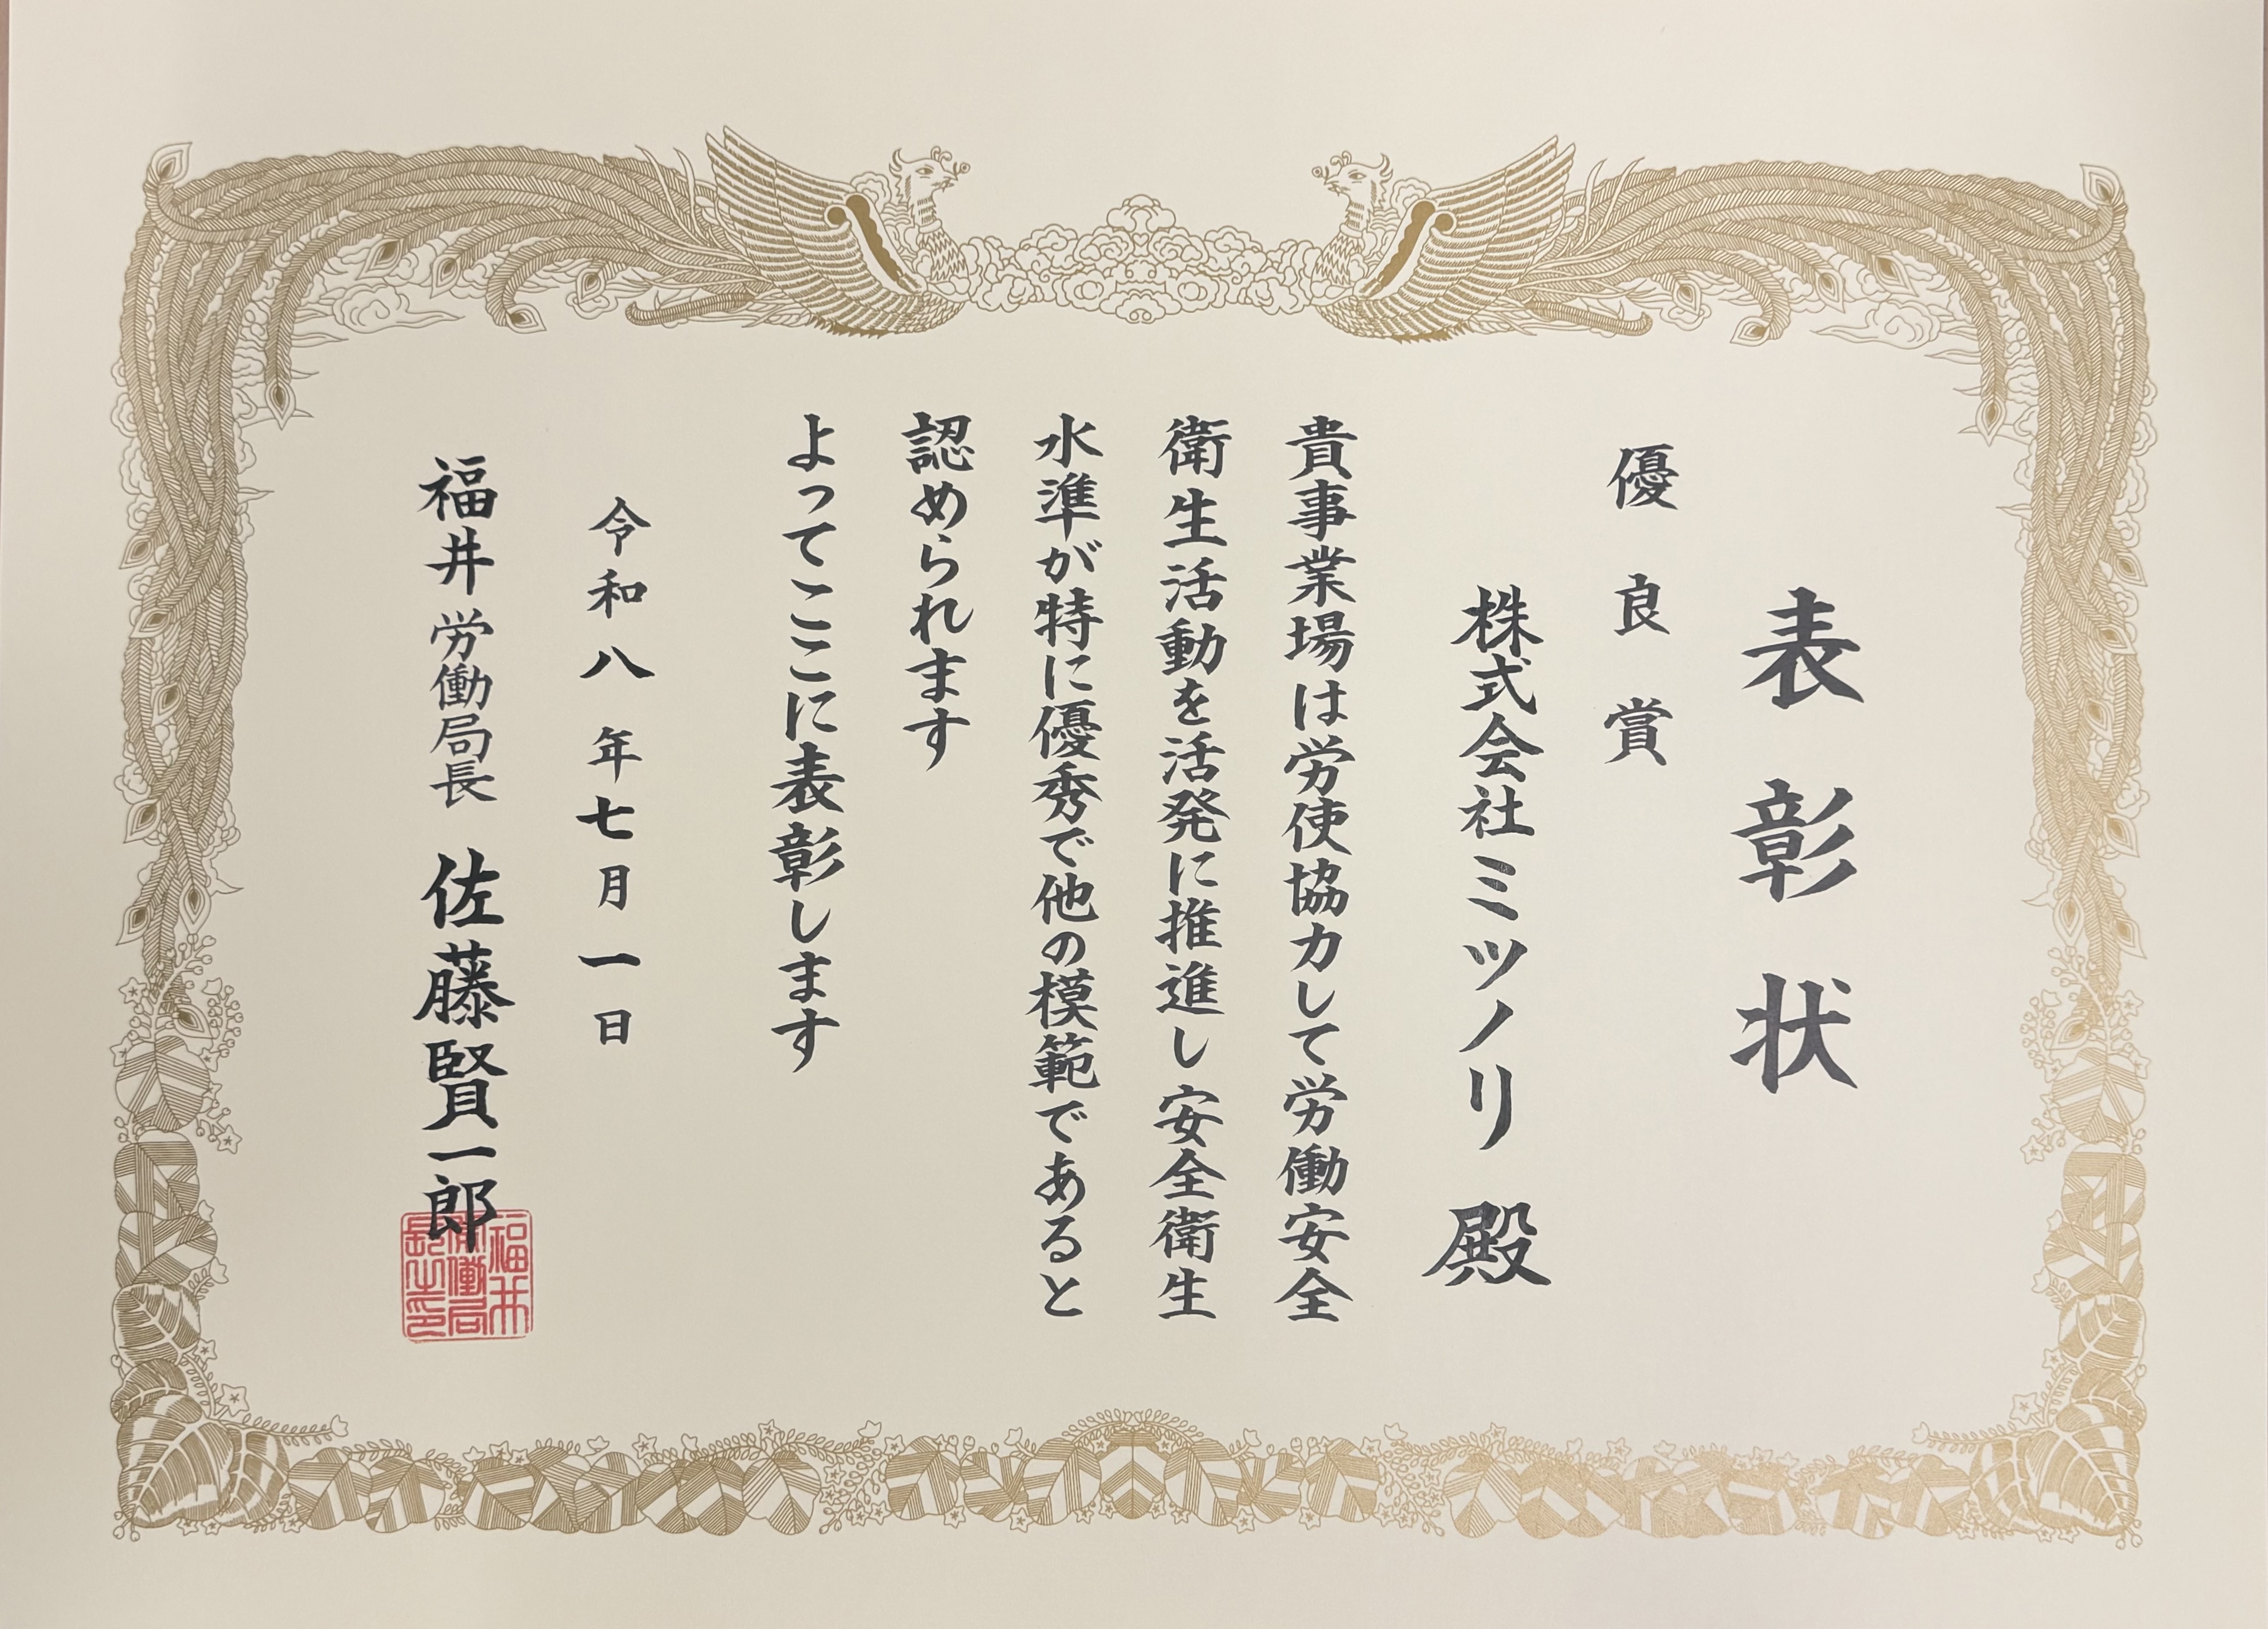 表彰状
優良賞
株式会社ミツノリ 殿
貴事業場は労使協力して労働安全
衛生活動を活発に推進し安全衛生
水準が特に優秀で他の模範であると
認められます
よってここに表彰します
令和八年七月一日
福井労働局長 佐藤賢一郎
福井
労働局
長之印